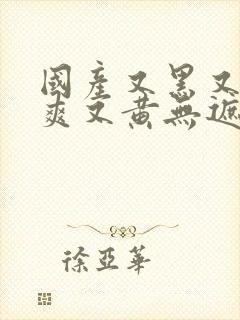 國產又黑又
爽又黃無遮
徐亞華